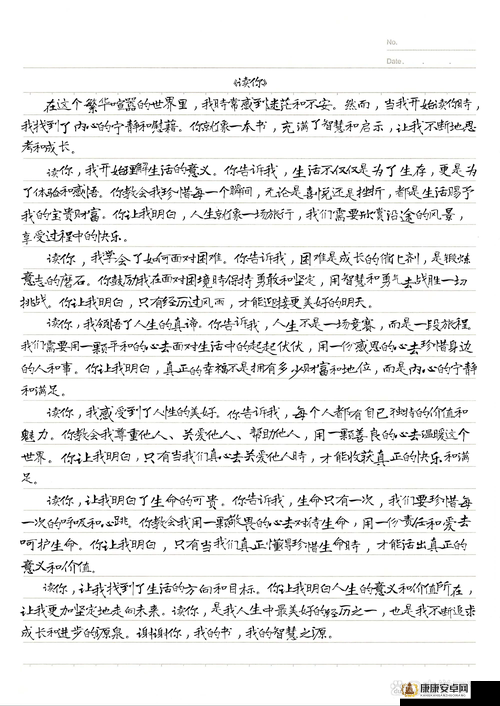 No.
Date.
《读你》
在这个繁华喧嚣的世界里，我时常感到迷茫和不安。然而，当我开始读你时，
我找到了内心的宁静和慰藉。你就像一本书，充满了智慧和启示，让我不断地思
考和成长。
读你，我开始理解生活的意义。你告诉我，生活不仅仅是为了生存，更是为
了体验和感悟。你教会我珍惜每一个瞬间，无论是喜悦还是挫折，都是生活赐予
我的宝贵财富。你让我明白，人生就像一场旅行，我们需要欣赏沿途的风景，
享受过程中的快乐。
读你，我学会了如何面对困难。你告诉我，困难是成长的催化剂，是锻炼
意志的磨石。你鼓励我在面对困境时保持勇敢和坚定，用智慧和勇气去战胜一切
挑战。你让我明白，只有经历过风雨，才能迎接更美好的明天。
读你，我领悟了人生的真谛。你告诉我，人生不是一场竞赛，而是一段旅程。
我们需要用一颗平和的心去面对生活中的起起伏伏，用一份感恩的心去珍惜身边
的人和事。你让我明白，真正的幸福不是拥有多少财富和地位，而是内心的宁静
和满足。
读你，我感受到了人性的美好。你告诉我，每个人都有自己独特的价值和
魅力。你教会我尊重他人、关爱他人、帮助他人，用一颗善良的心去温暖这个
世界。你让我明白，只有当我们真心去关爱他人时，才能收获真正的快乐和满
足。
读你，让我明白了生命的可贵。你告诉我，生命只有一次，我们要珍惜每
一次的呼吸和心跳。你教会我用一颗敬畏的心去对待生命，用一份责任和爱去
呵护生命。你让我明白，只有当我们真正懂得珍惜生命时，才能活出真正的
意义和价值。
读你，让我找到了生活的方向和目标。你让我明白人生的意义和价值所在，
让我更加坚定地走向未来。读你，是我人生中最美好的经历之一，也是我不断追求
成长和进步的源泉。谢谢你，我的书，我的智慧之源。
康康安卓网